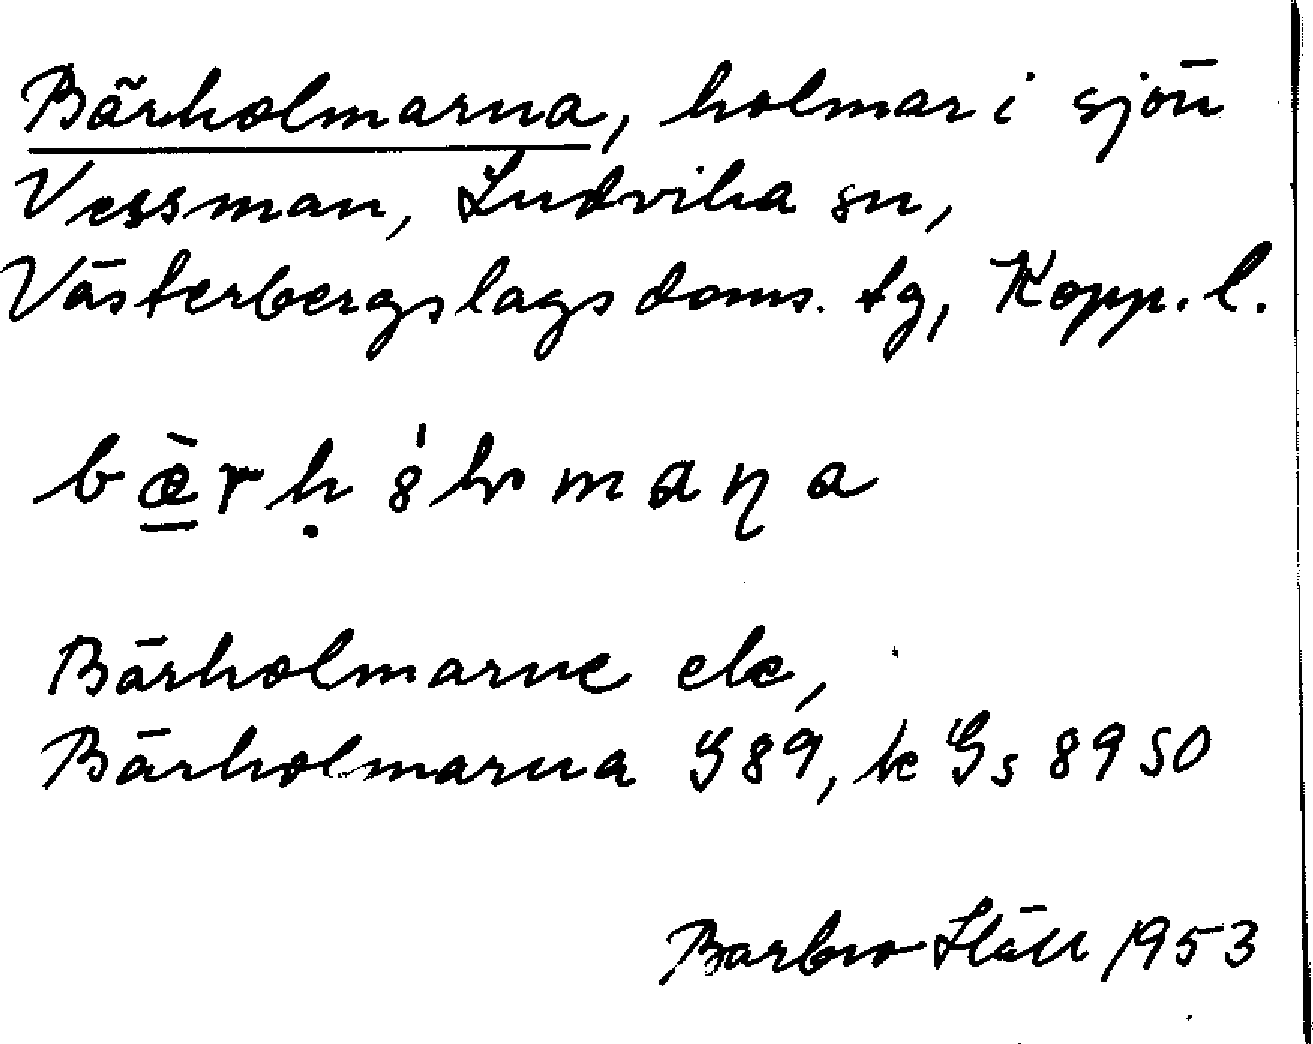 Bärholmarna, holmar i sjön
Vessman, Ludvika sn,
Västerbergslags doms. tg, Kopp. l.
Bärholmarne ek,
Bärholmarna G89, k Gs 8950
Barbro Släll 1953